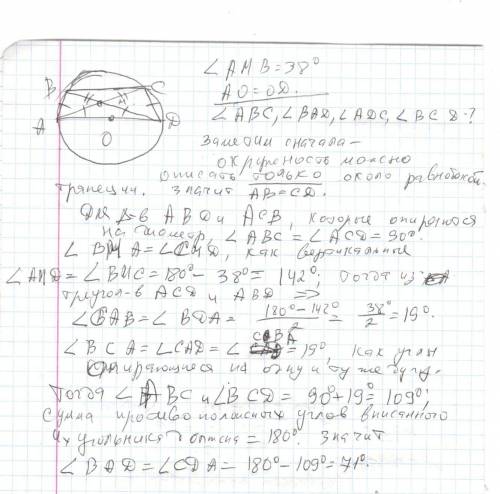 B
C
A
D
O
∠AMB=38°
AO=OD.
∠ABC, ∠BAD, ∠ADC, ∠BCD-?
Заметим сначала-
окружность можно
описать только около равнобокой
трапеции. Значит AB=CD.
Для Δ-в ABD и ACD, которые опираются
на диаметр, ∠ABC=∠ACD=90°.
∠BMA=∠CMD, как вертикальные
∠AMD=∠BMC=180°-38°=142°, тогда из
треугол-в ACD и ABD ⇒
∠CAB=∠BDA= 180°-142°/2 = 38°/2 =19°.
∠BCA=∠CAD=∠CBA=19°, как углы
опирающиеся на одну и ту же дугу.
Тогда ∠ABC и ∠BCD= 90°+19°=109°,
Сумма противоположных углов вписанного
4х угольника =180°. Значит
∠BAD=∠CDA=180°-109°=71°.